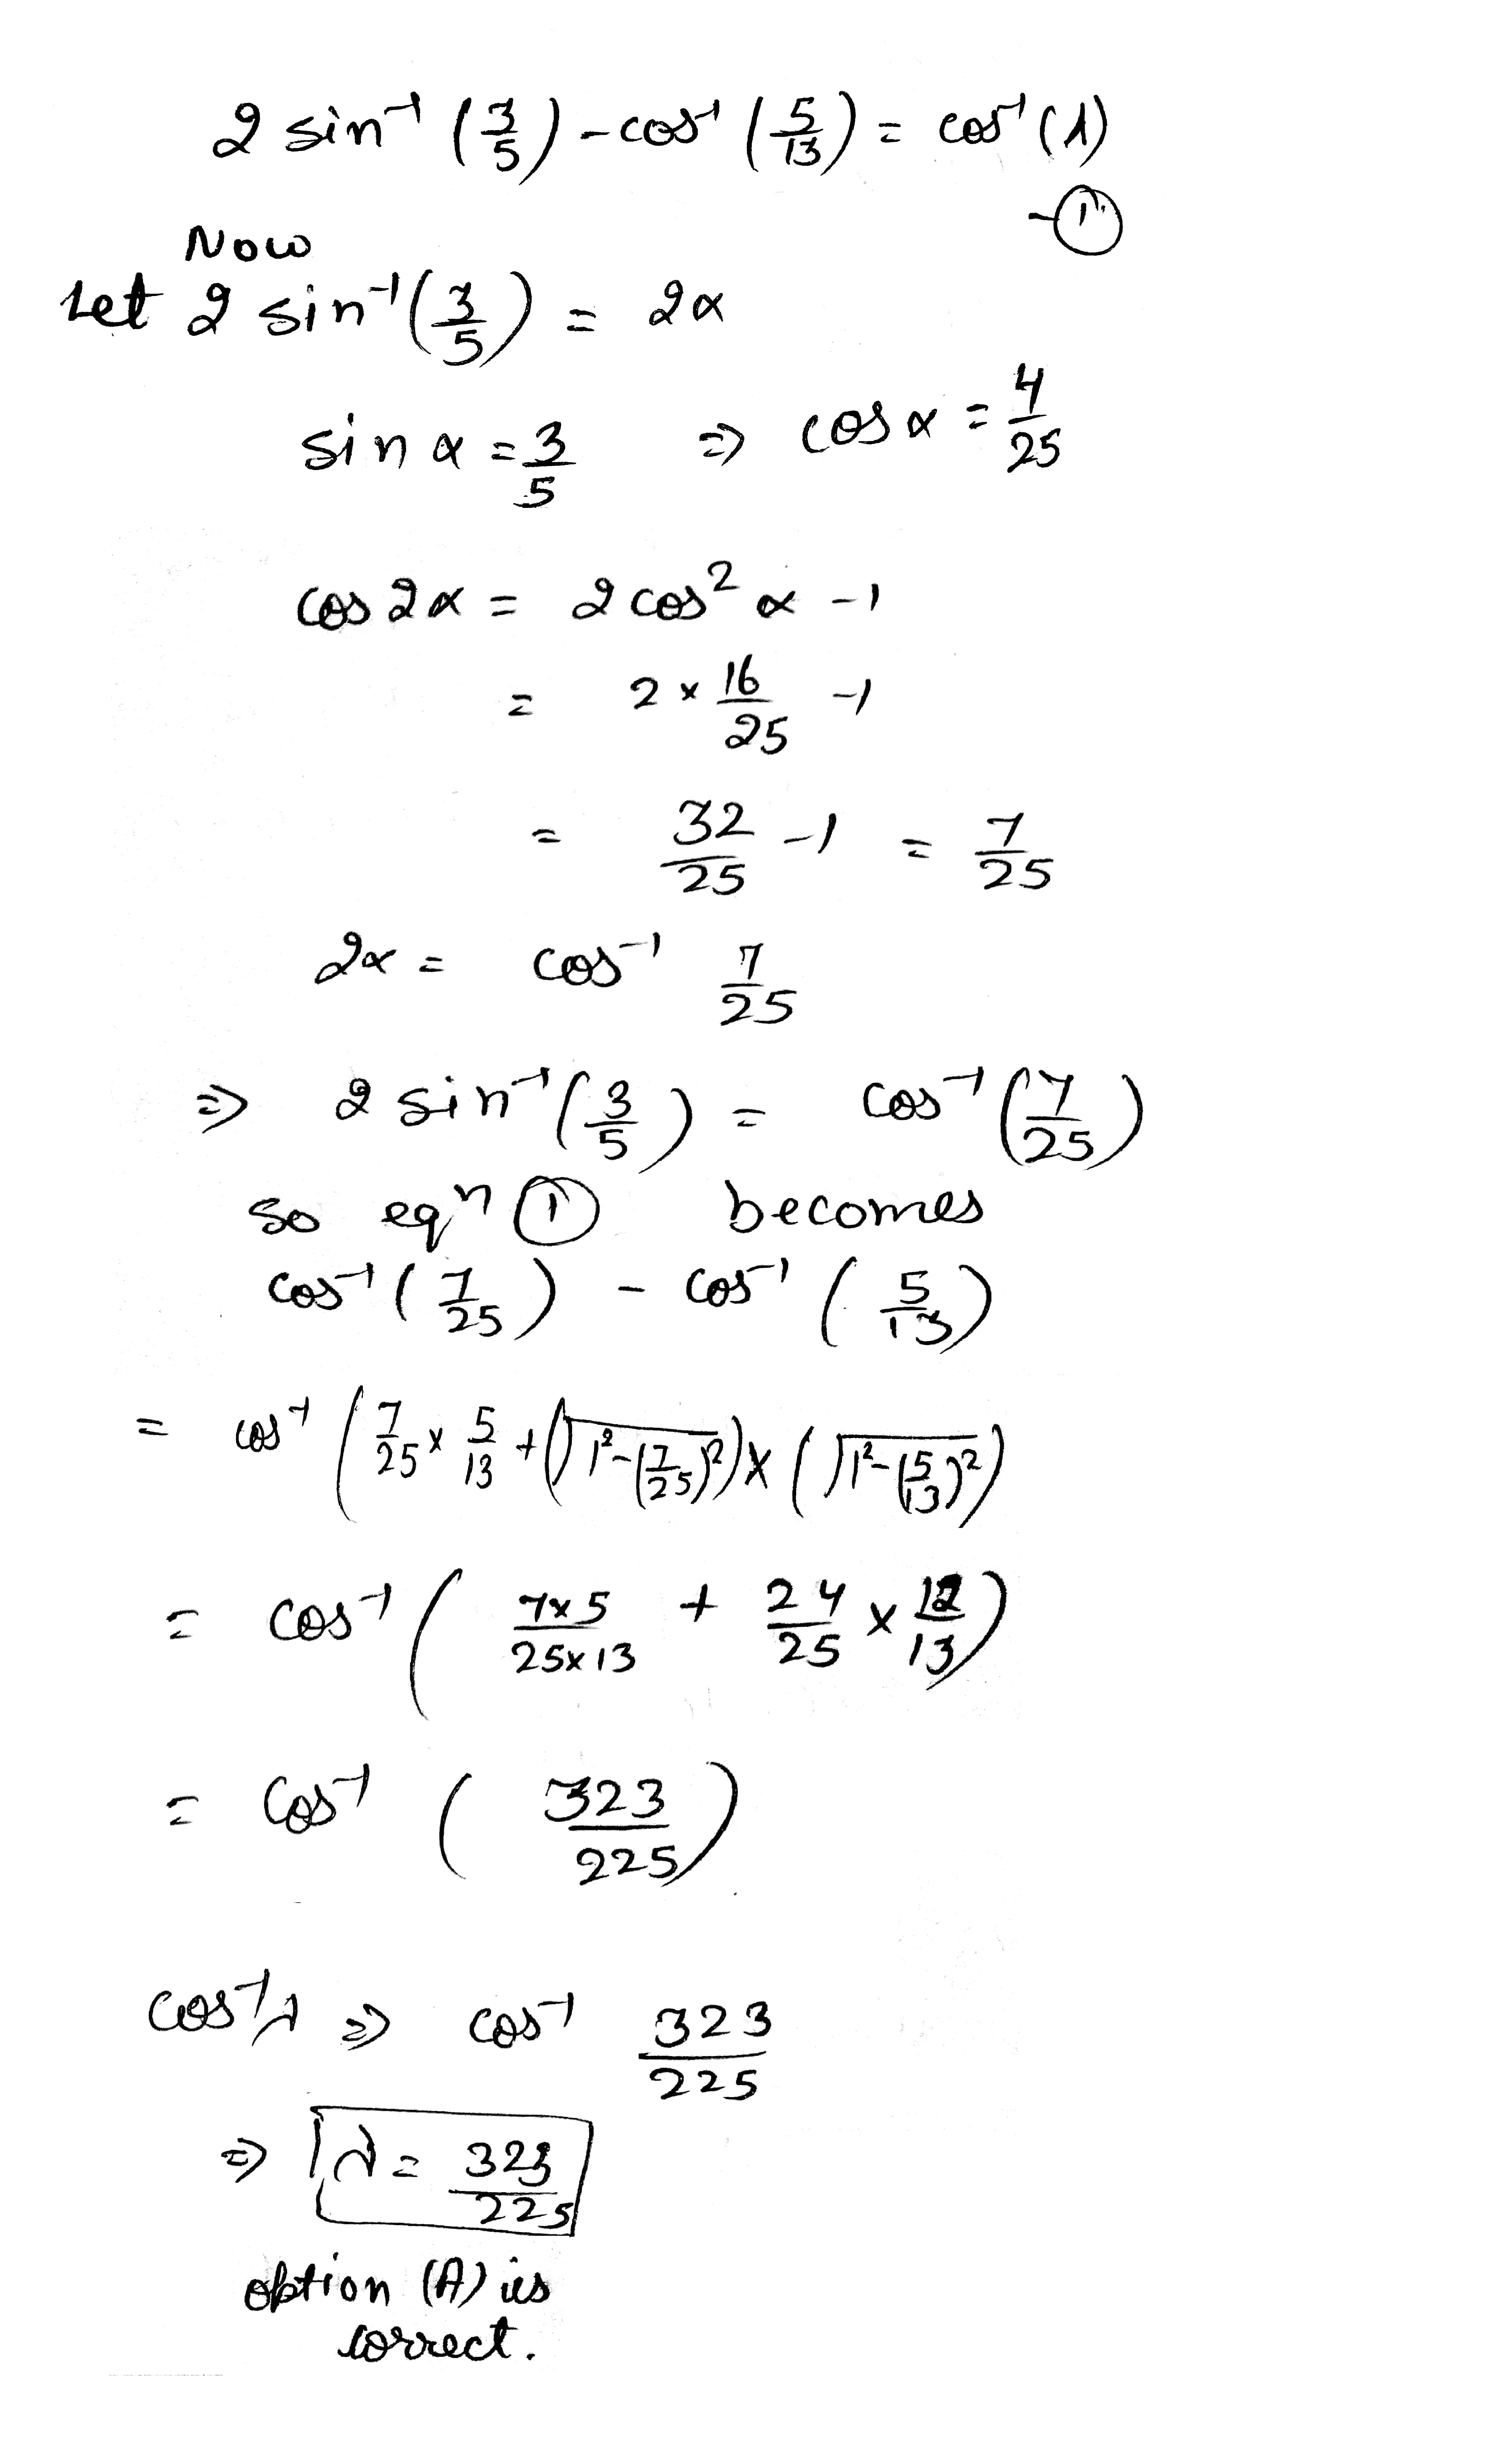 2 sin⁻¹ (3/5) - cos⁻¹ (5/13) = cos⁻¹ (λ)
- ①
Now
Let 2 sin⁻¹ (3/5) = 2α
sin α = 3/5 ⇒ cos α = 4/25
cos 2α = 2 cos² α - 1
= 2 × 16/25 - 1
= 32/25 - 1 = 7/25
2α = cos⁻¹ 7/25
⇒ 2 sin⁻¹ (3/5) = cos⁻¹ (7/25)
so eqⁿ ① becomes
cos⁻¹ (7/25) - cos⁻¹ (5/13)
= cos⁻¹ (7/25 × 5/13 + (√(1² - (7/25)²)) × (√(1² - (5/13)²)
= cos⁻¹ (7×5/25×13 + 24/25 × 12/13)
= cos⁻¹ (323/225)
cos⁻¹ λ ⇒ cos⁻¹ 323/225
⇒ λ = 323/225
option (A) is
correct.